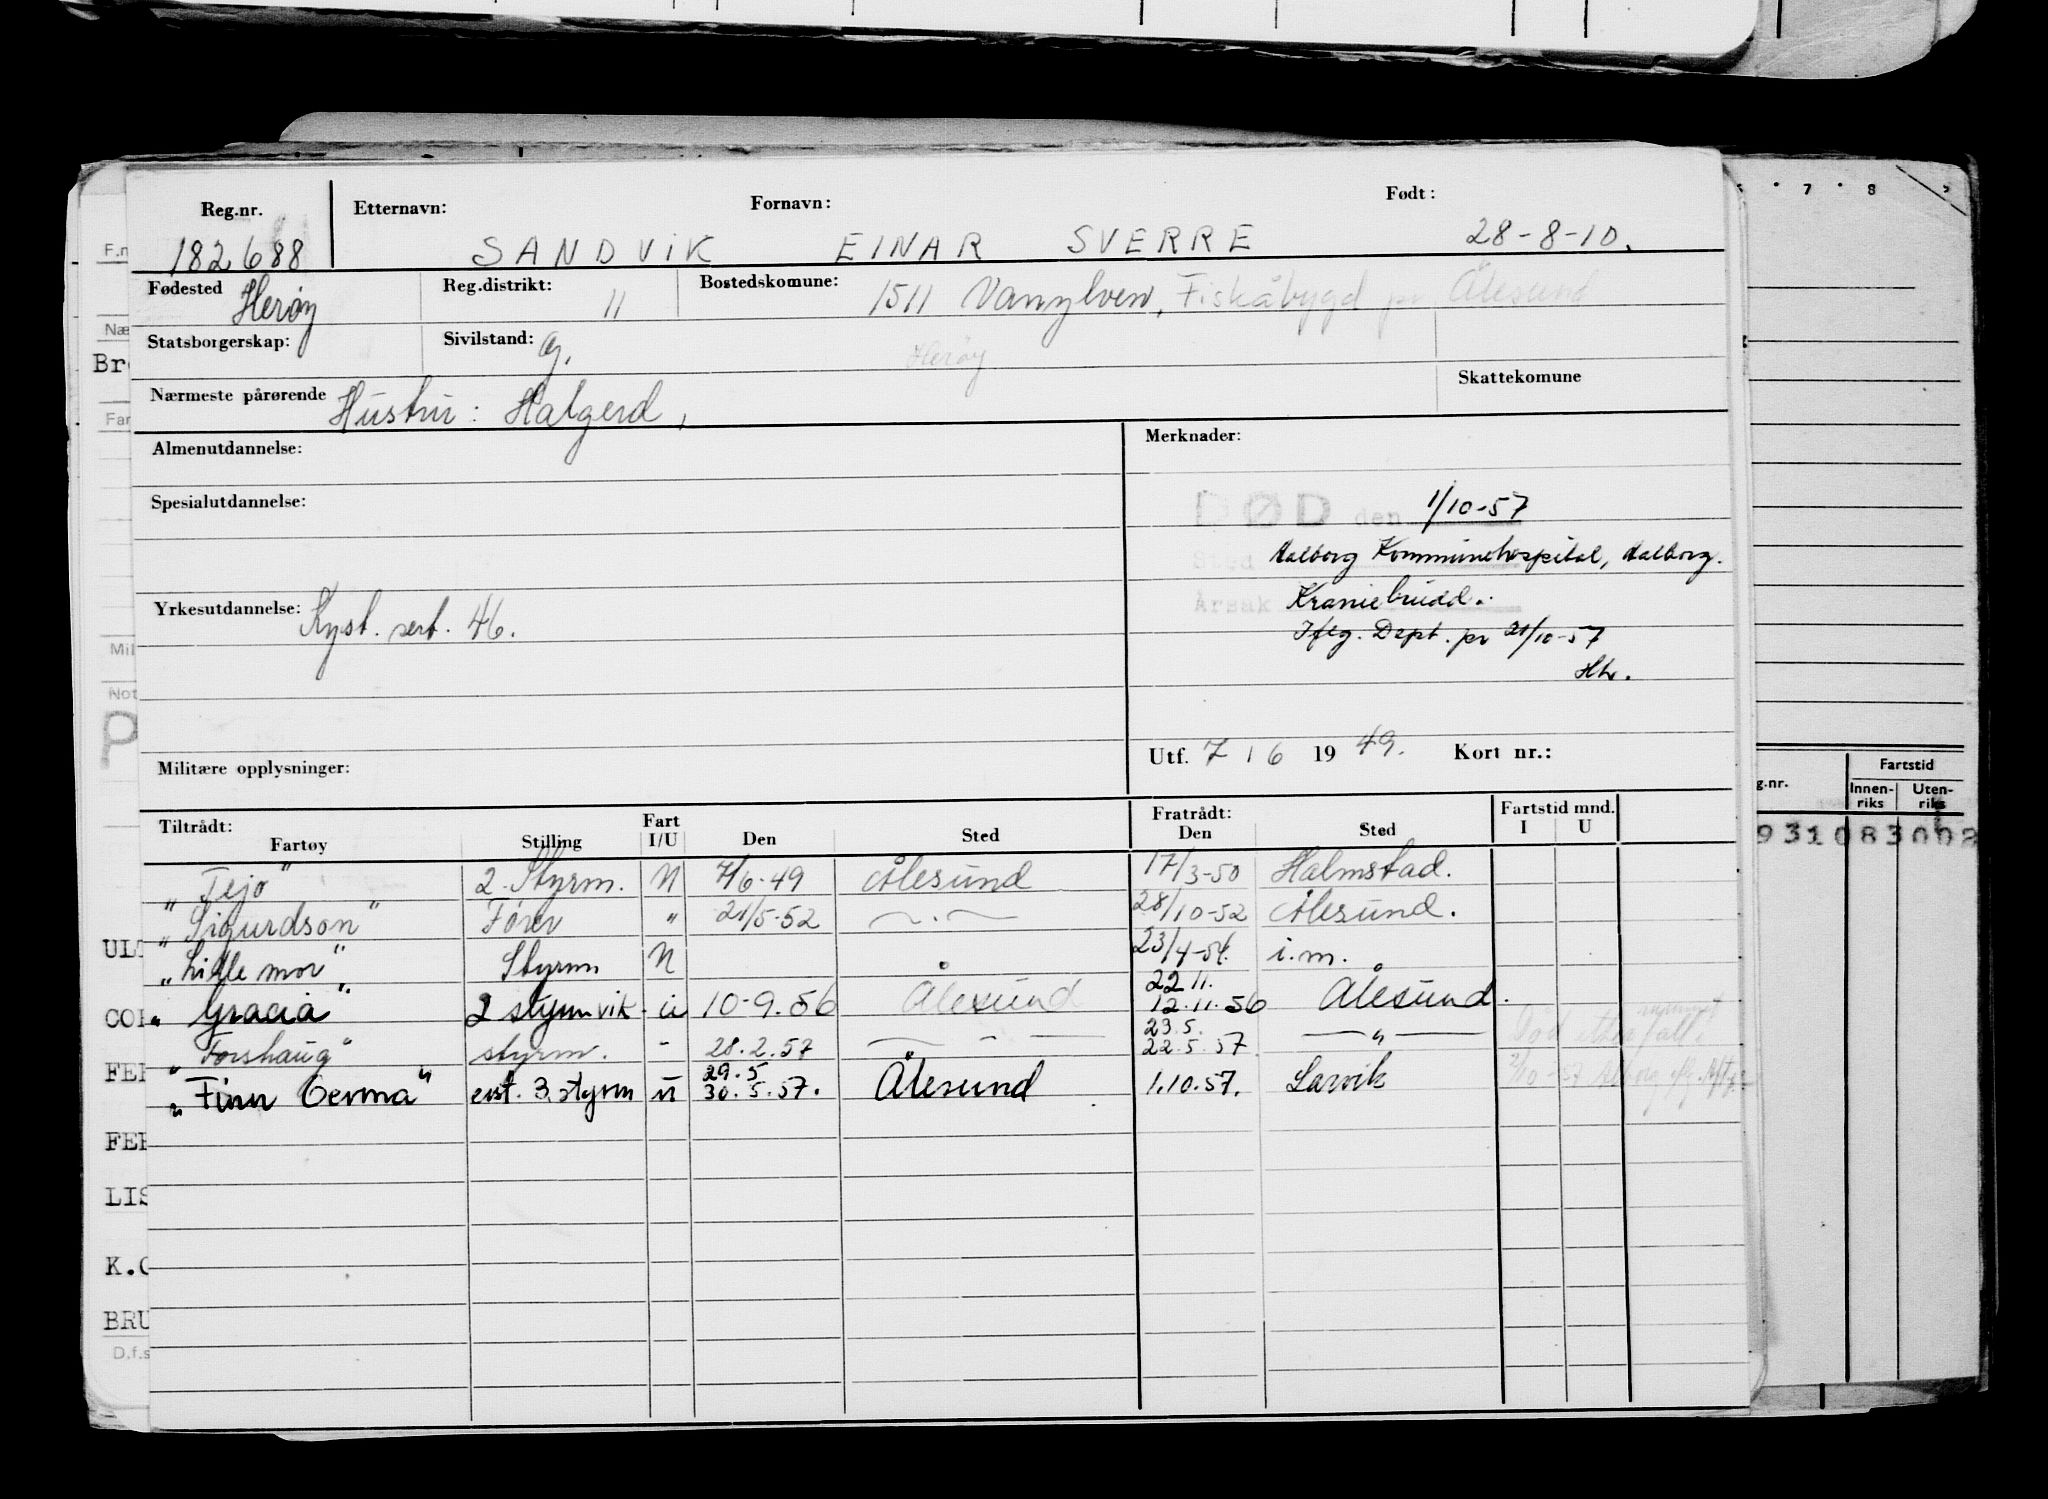 7 8
Reg.nr. Etternavn: Fornavn: Født:
182688 SANDVIK EINAR SVERRE 28-8-10.
Fødested Herøy Reg.distrikt: 11 Bostedskomune: 1511 Vanylven, Fiskåbygd pr Ålesund
Statsborgerskap: Sivilstand: G. Herøy
Nærmeste pårørende Hustru: Halgerd, Skattekomune
Almenutdannelse: Merknader:
Spesialutdannelse: DØD den 1/10-57
Sted Aalborg Kommunehospital, Aalborg.
Yrkesutdannelse: Kyst. sert. 46. Årsak Kraniebrudd.
Iflg. Dept. pr 21/10-57
Utf. 7 / 6 19 49. Kort nr.:
Militære opplysninger:
Tiltrådt: Fart Fratrådt: Fartstid mnd.
Fartøy Stilling I/U Den Sted Den Sted I U
"Tejo" 2. Styrm. N 7/6-49 Ålesund 17/3-50 Halmstad.
"Sigurdson" Fører " 21/5-52 —·— 28/10-52 Ålesund.
"Lille mor" Styrm N 23/4-54. i.m.
22 11.
"Gracia" 2 styrm vik U 10-9.56 Ålesund 12.11.56 Ålesund.
23.5.
"Forshaug" styrm. - 28.2.57 — — 22.5.57 —"— Død
29.5
"Finn Germa" est. 3. styrm U 30.5.57. Ålesund 1.10.57. Larvik
F.n
Næ
Bre
Far
Mil
Not
P
UL
COR
FER
FER
LIS
K.O
BRU
D.f.s
g.nr. Fartstid
Innen-riks Uten-riks
931083008